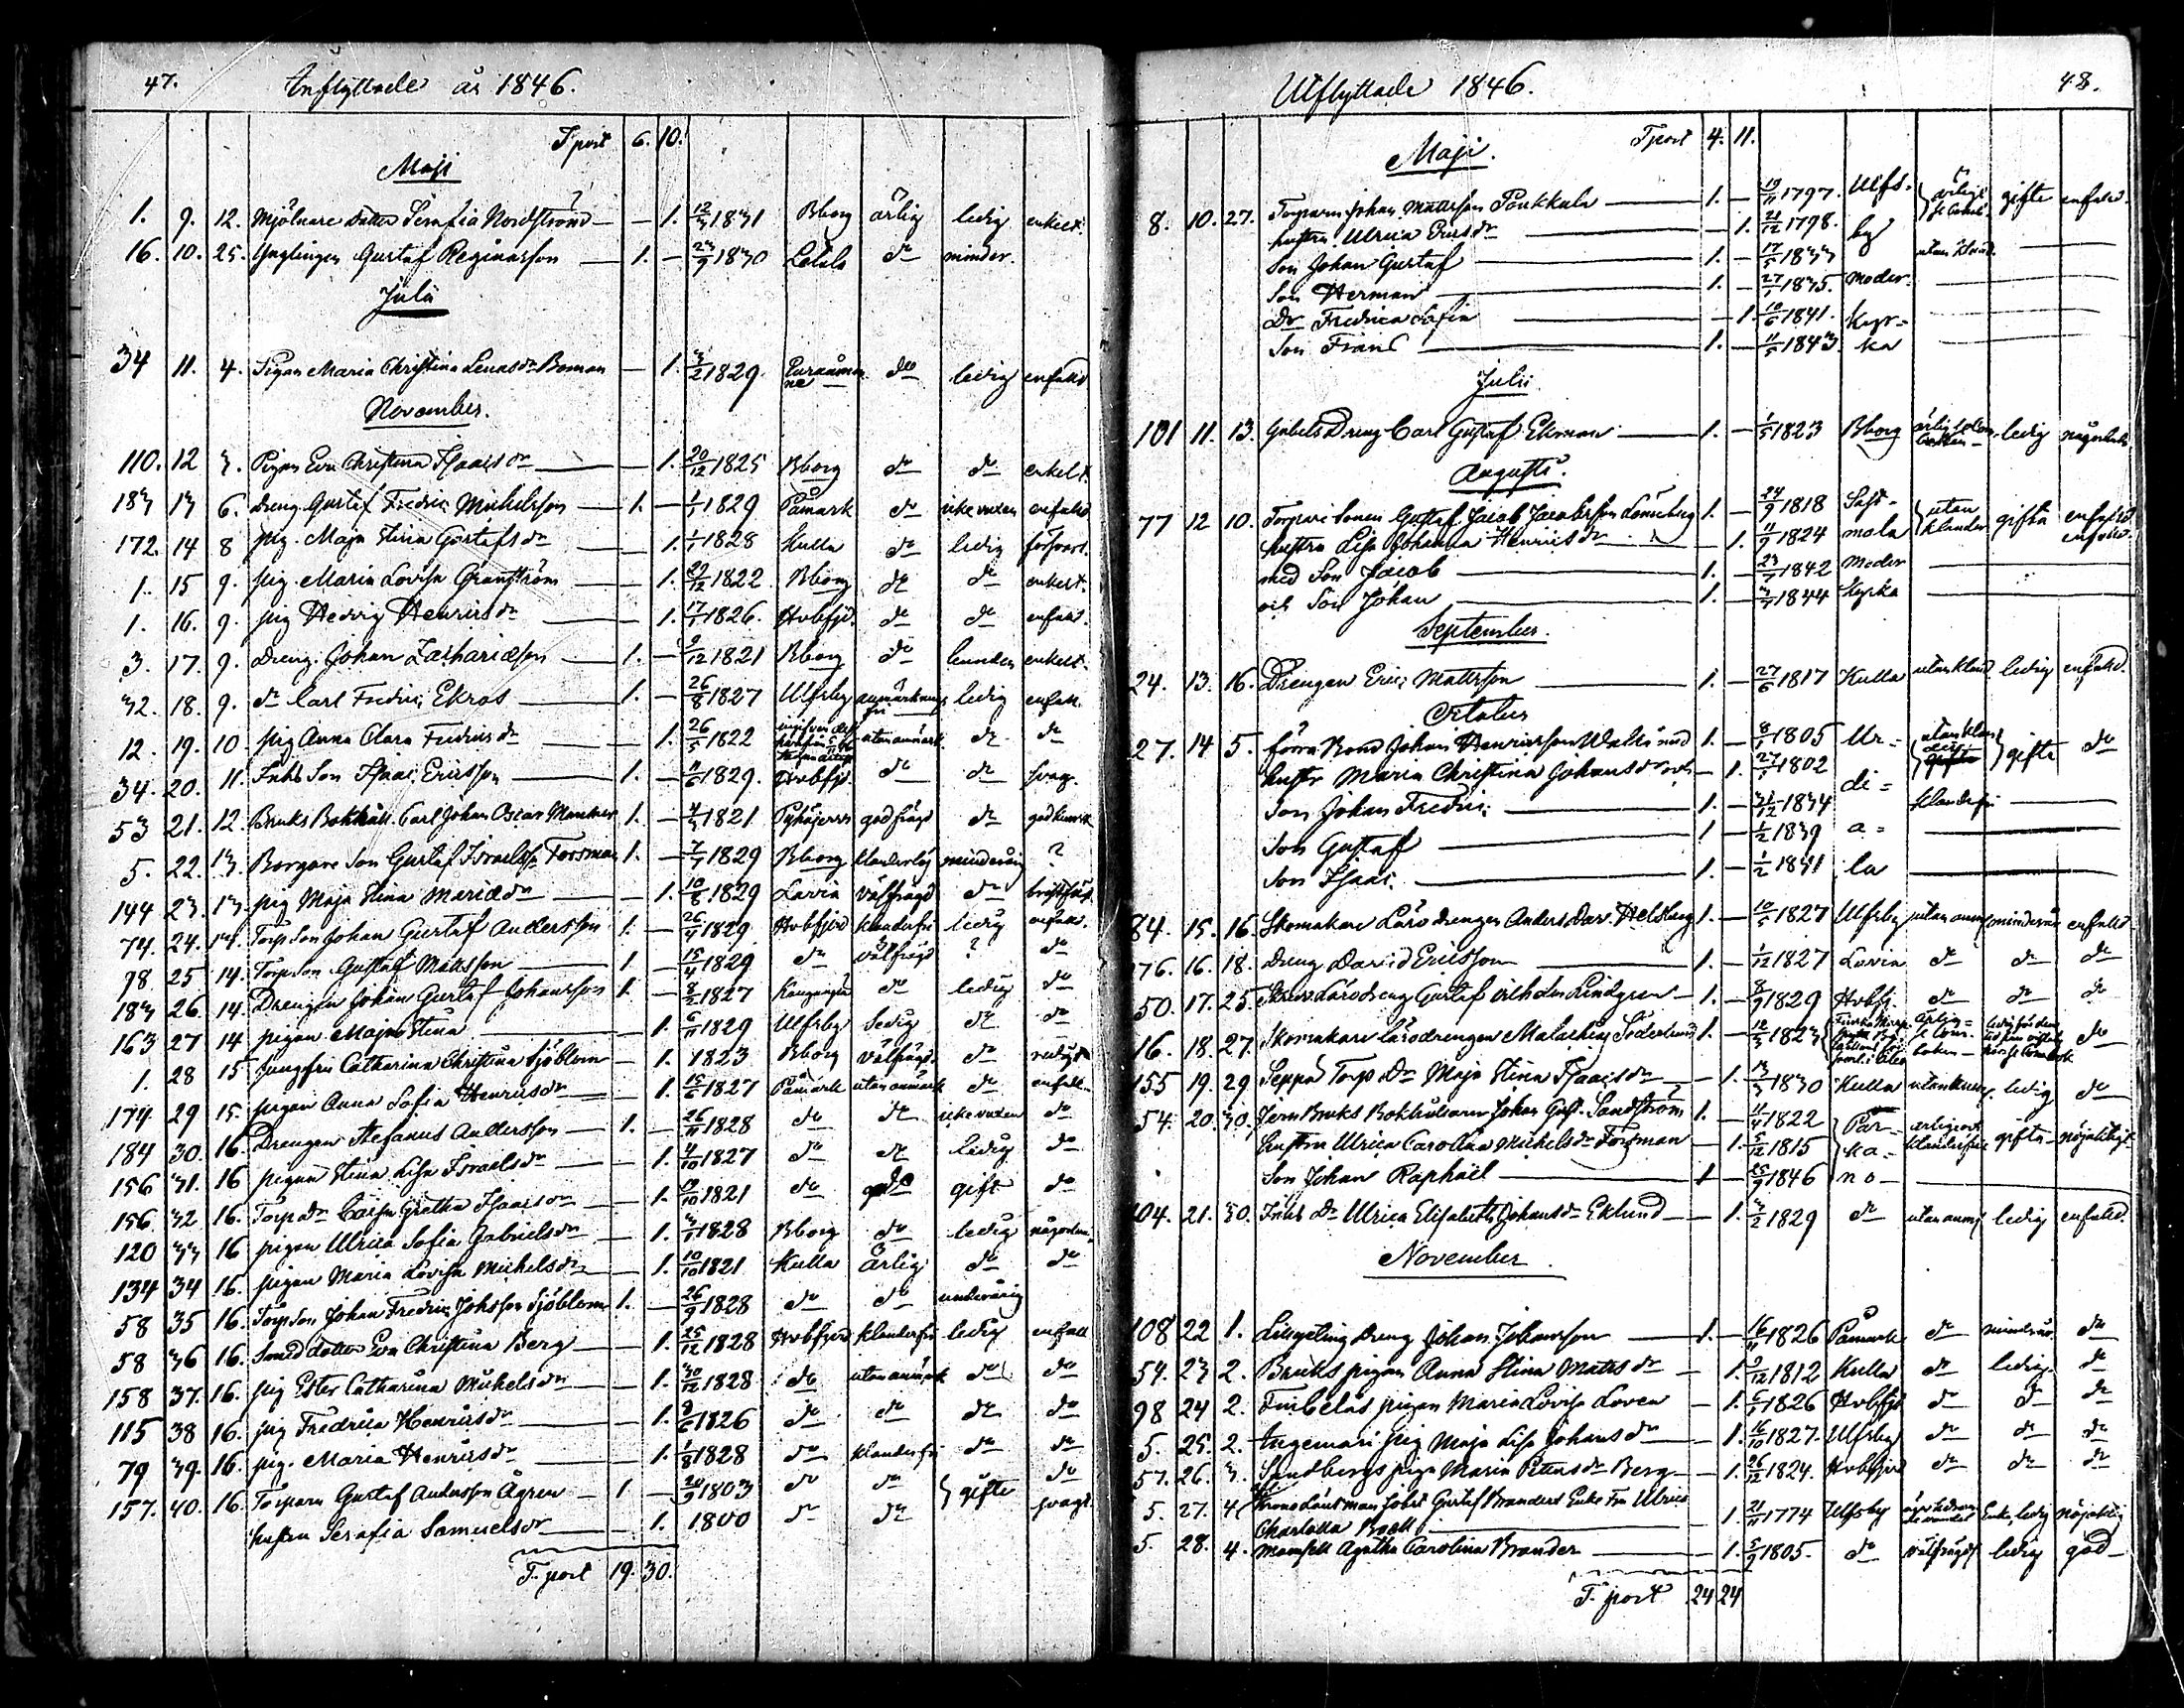 47. Inflyttade år 1846.
Tport 6. 10.
Maji
1. 9. 12. Mjölnare Dotter Serafia Nordström — 1. 12/3 1831 Bborg ärlig ledig enkelt.
16. 10. 25. Ynglingen Gustaf Reginasson 1. — 23/9 1830 do minder.
Julii
34 11. 4. Pigan Maria Christina Boman — 1. 3/2 1829. do ledig enfald
November.
110. 12 3. Pigan Eva Christina Isaacsdr — 1. 20/12 1825 Bborg do do enkelt.
183 13 6. Dreng Gustaf Fredric Michelsson 1. — 1/1 1829 Påmark do icke vuxen enfald
172. 14 8 pig. Maja Stina Gustafsdr 1. 1/1 1828 Kulla do ledig försvarl.
1. 15 9. pig. Maria Lovisa Granström — 1. 29/12 1822 Bborg do do enkelt.
1. 16. 9. pig Hedvig Henricsdr 1. 17/1 1826. Hvbfjd. do do enfald.
3. 17. 9. Dreng. Johan Zachariasson 1. — 9/12 1821 Bborg do bunden enkelt.
32. 18. 9. do Carl Fredric Ekros 1. — 26/8 1827 Ulfsby anmärknings fri ledig enfald.
12. 19. 10 pig Anna Clara Fredricsdr 1. 26/5 1822 utan anmärk. do do
34. 20. 11. Inhs Son Isaac Ericsson 1. — 11/6 1829. Hvbfjd. do do svag.
53 21. 12. Bruks Bokhåll. Carl Johan Oscar 1. — 4/3 1821 god frägd do god kunsk
5. 22. 13. Borgare Son Gustaf Israelss. Forsman 1. — 7/7 1829 Bborg klanderlös minderårig ?
144 23. 13. pig Maja Stina Mariædr — 1. 10/8 1829 Lavia välfrägd do
74. 24. 14. Torp Son Johan Gustaf Andersson 1. — 26/7 1829 Hvbfjerd klanderfri ledig enfald.
98. 25 14. Torp. Son Gustaf Mattsson 1. — 15/4 1829 do välfrägd ? do
183 26 14. Drengen Johan Gustaf Johansson 1. — 8/2 1827 do ledig do
163 27 14 pigan Maja Stina — 1. 6/11 1829 Ulfsby ledig do do
1. 28 15 Jungfru Catharina Christina Sjöblom — 1. 1823 Bborg välfrägd. do
174 29 15. pigan Anna Sofia Henricsdr 1. 15/6 1827 Påmark utan anmärk do enfald
184 30. 16. Drengen Stefanus Andersson 1. — 26/11 1828 do do icke vuxen do
156 31. 16 pigan Stina Lisa Israelsdr — 1. 4/10 1827 do do ledig do
156 32 16. Torp dr Caisa Gretha Isaacsdr — 1. 19/10 1821 do do gift do
120 33 16 pigan Ulrica Sofia Gabrielsdr — 1. 3/1 1828 Bborg do ledig
134 34 16. pigan Maria Lovisa Michelsdr 1. 10/10 1821 Kulla Ärlig do do
58 35 16. Torp Son Johan Fredric Johsson Sjöblom 1. — 26/9 1828 do do underårig
58 36 16. Smed dotter Eva Christina Berg 1. 25/12 1828 Hvbfjerd klanderfri ledig enfald
158 37. 16. pig Ester Catharina Michelsdr — 1. 30/12 1828 do utan anmärk do do
115 38 16. pig Fredrica Henricsdr — 1. 8/6 1826 do do do do
79 39. 16. pig. Maria Henricsdr 1. 1/8 1828 do klanderfri do do
157. 40. 16. Torparn Gustaf Andersson Ågren 1 — 20/9 1803 do do gifte do
hustru Serafia Samuelsdr — 1. 1800 do do svagt.
T. port 19. 30.
Utflyttade 1846. 48.
Tport 4. 11.
Maji.
8. 10. 27. Torparen Johan Mattsson Poukkala 1. — 19/11 1797. Ulfs- gifte enfald.
hustru Ulrica Ericsdr — 1. 21/12 1798. by
Son Johan Gustaf 1. — 17/5 1833 utan kland.
Son Herman 1. — 27/1 1835. Moder-
Dr Fredrica Sofia — 1. 10/6 1841. kyr-
Son Frans 1. — 11/5 1843. ka
Julii.
101 11. 13. Dreng Carl Gustaf Ekman 1. — 1/5 1823 Bborg ledig någorlunda
Augusti.
77 12 10. Torpare Sonen Gustaf Jacob Jacobsson Lönneberg 1. — 24/9 1818 Sast- utan klander gifta enfald
hustru Lisa Johanna Henricsdr — 1. 11/9 1824 mola enfald.
med Son Jacob 1. — 23/7 1842 Moder
och Son Johan 1. — 3/7 1844 Kyrka
September.
24. 13. 16. Drengen Eric Mattsson 1. — 27/6 1817 Kulla utan kland ledig enfald.
October
27. 14 5. förra Bond Johan Henricsson 1. — 8/1 1805 Ur- utan klan der gifte do
hustr Maria Christina Johansdr och — 1. 27/1 1802 di-
Son Johan Fredric 1. — 31/12 1834 klanderfri
Son Gustaf 1 — 1/2 1839 a-
Son Isaac. 1. — 1/2 1841 la
84. 15. 16. Skomakare Lärodrengen Anders Dav. Hellberg 1. — 10/5 1827 Ulfsby utan anm minderår enfald
76. 16. 18. Dreng David Ericsson 1. — 1/12 1827 Lavia do do do
50. 17. 25. Lärodreng Gustaf Vilhelm Lindgren 1. — 8/9 1829 Hvbfj. do do do
16. 18. 27. Skomakare lärodrengen Malachias Söderlund 1. — 12/3 1823 do
155 19. 29 Seppas Torp. Dr Maja Stina Isaacsdr — 1. 13/3 1830 Kulla ledig do
54. 20. 30. Jern Bruks Bokhållaren Johan Gust. Sandström 1. — 11/4 1822 Par- ärlig och gifte nöjaktigt
hustru Ulrica Carolina Michelsdr Forsman — 1. 5/12 1815 ka- klanderfri
Son Johan Raphael 1 — 25/9 1846 no-
104. 21. 30. Inhs Dr Ulrica Elisabeth Johansdr Eklund — 1. 3/2 1829 do utan anm ledig enfald.
November
108 22 1. Dreng Johan Johansson 1. — 16/11 1826 Påmark do minderår. do
54. 23 2. Bruks pigan Anna Stina Mattsdr — 1. 9/12 1812 Kulla do ledig. do
98 24 2. pigan Maria Lovisa Loven — 1. 6/5 1826 Hvbfjd do do do
5. 25. 2. Ingemari pig Maja Lisa Johansdr — 1. 16/10 1827. Ulfsby do do do
57. 26. 3. Sandbergs piga Maria Petersdr Berg — 1. 26/12 1824. Hvbfjerd do do do
5. 27. 4. Krono Länsman Johst Gustaf Branders Enka Fru Ulrica
Charlotta Boell — 1. 21/11 1774 Ulfsby Enka, ledig nöjaktig
5. 28. 4. Mamsell Agatha Carolina Brander — 1. 5/9 1805. do välfrägd ledig god
T. port 24 24